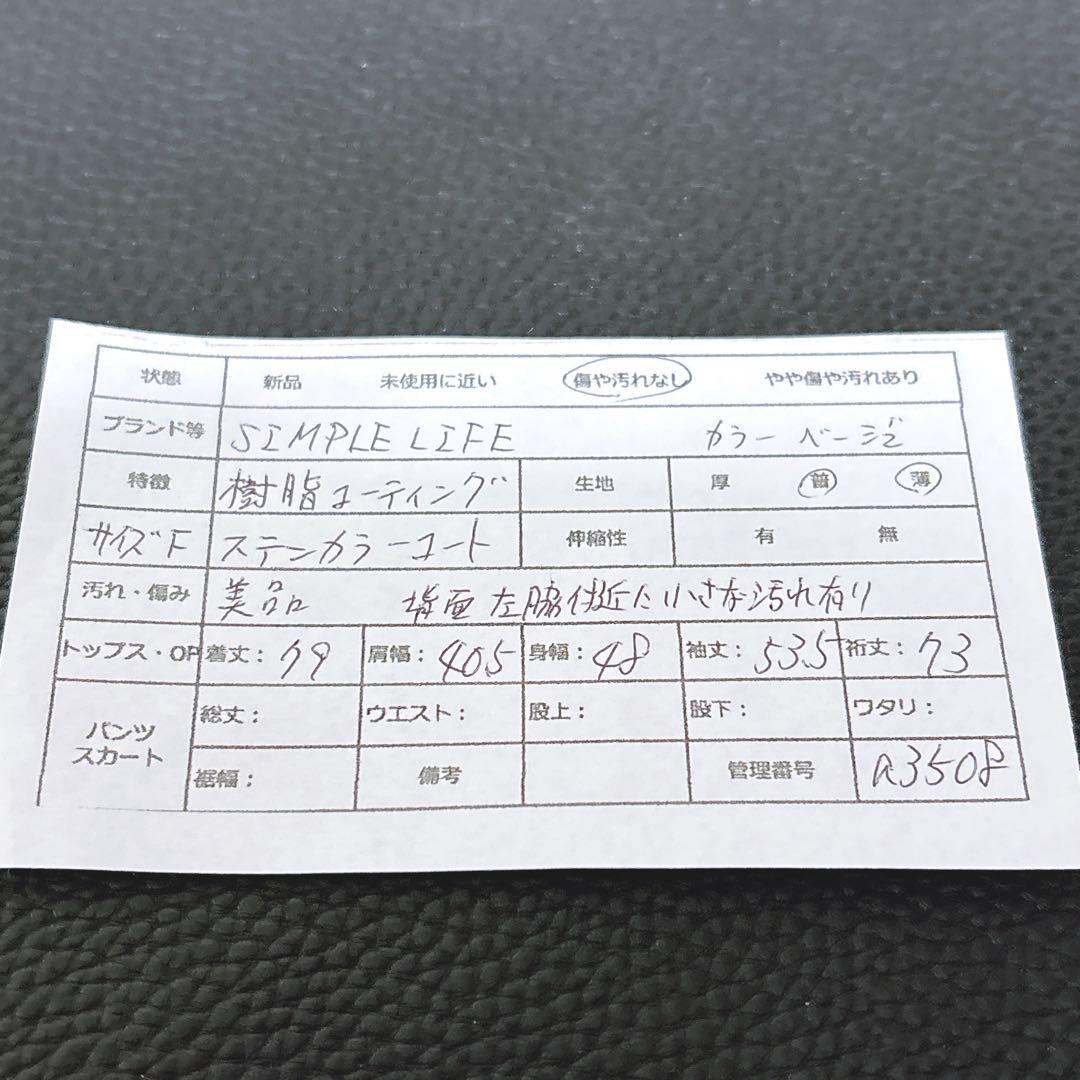 状態 新品 未使用に近い 傷や汚れなし やや傷や汚れあり
ブランド等 SIMPLE LIFE カラー ベージュ
特徴 樹脂コーティング 生地 厚 普 薄
サイズF ステンカラーコート 伸縮性 有 無
汚れ・傷み 美品 背面左脇付近に小さな汚れ有り
トップス・OP 着丈：79 肩幅：40.5 身幅：48 袖丈：53.5 裄丈：73
パンツ スカート 総丈： ウエスト： 股上： 股下： ワタリ：
裾幅： 備考 管理番号 a3508